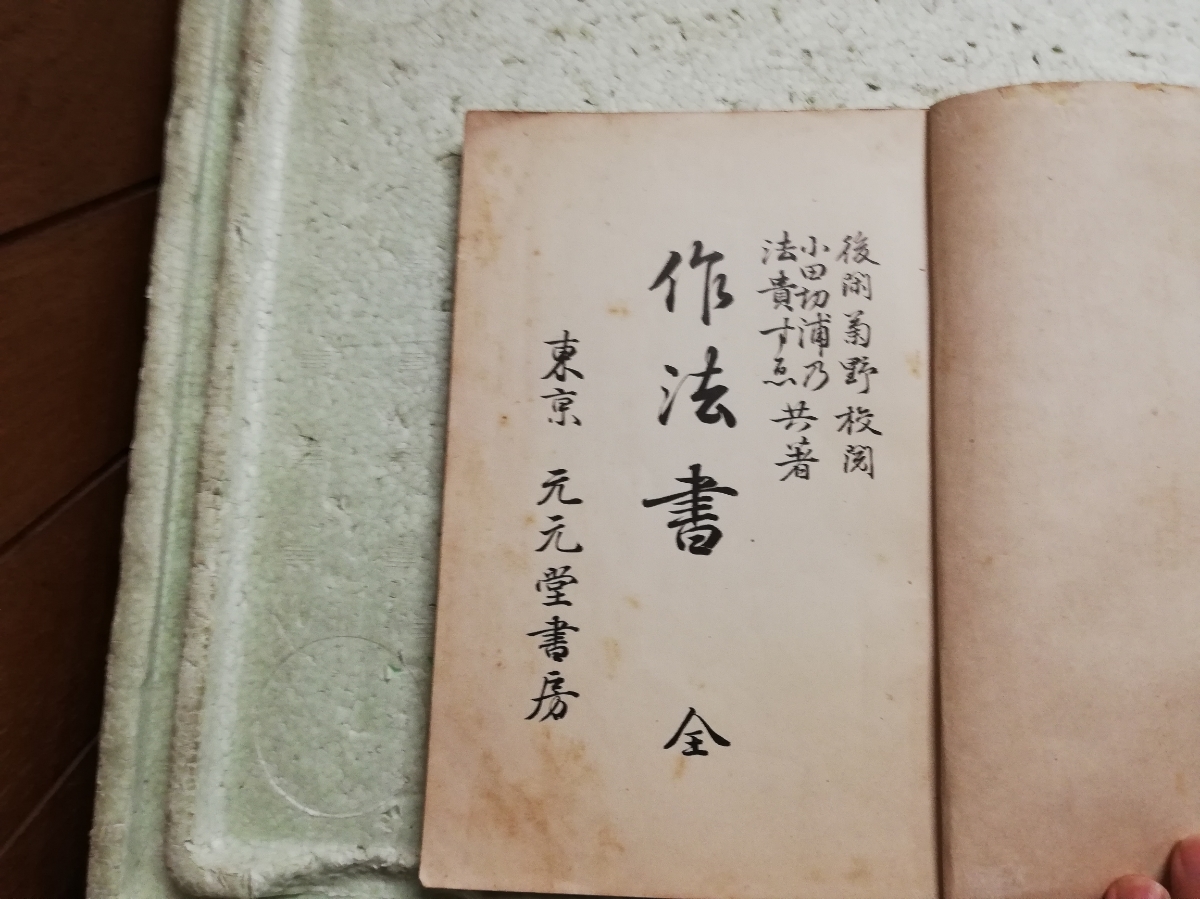 後閑菊野校閲
小田切浦乃
法貴すゑ
共著
作法書 全
東京 元元堂書房